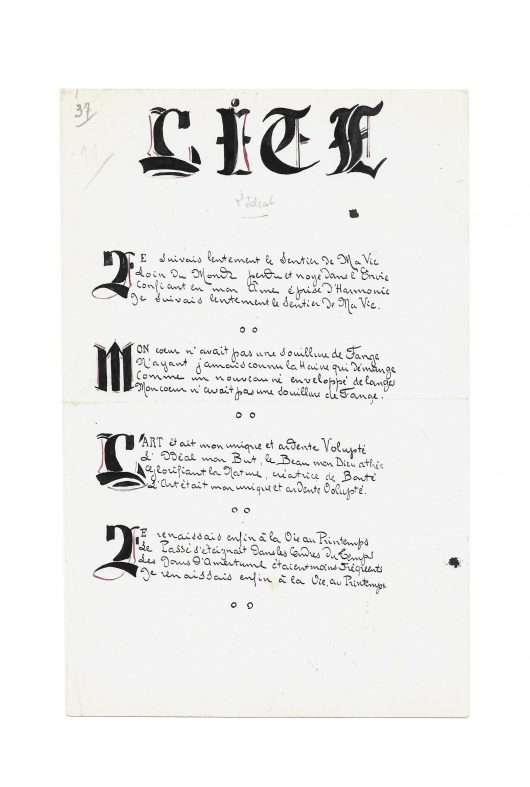 37
L'idéal
JE suivais lentement le Sentier de Ma Vie
Loin du Monde perdu et noyé dans l'Envie
Confiant en mon Âme éprise d'Harmonie
Je suivais lentement le Sentier de Ma Vie.
MON cœur n'avait pas une souillure de Fange
N'ayant jamais connu la Haine qui démange
Comme un nouveau né enveloppé de langes
Mon cœur n'avait pas une souillure de Fange.
L'ART était mon unique et ardente Volupté
L'Idéal mon But, le Beau mon Dieu athée
glorifiant la Nature, créatrice de Bonté
L'Art était mon unique et ardente Volupté.
JE renaissais enfin à la Vie au Printemps
Le Passé s'éteignait dans les Cendres du Temps
Les Jours d'Amertume étaient moins Fréquents
Je renaissais enfin à la Vie, au Printemps